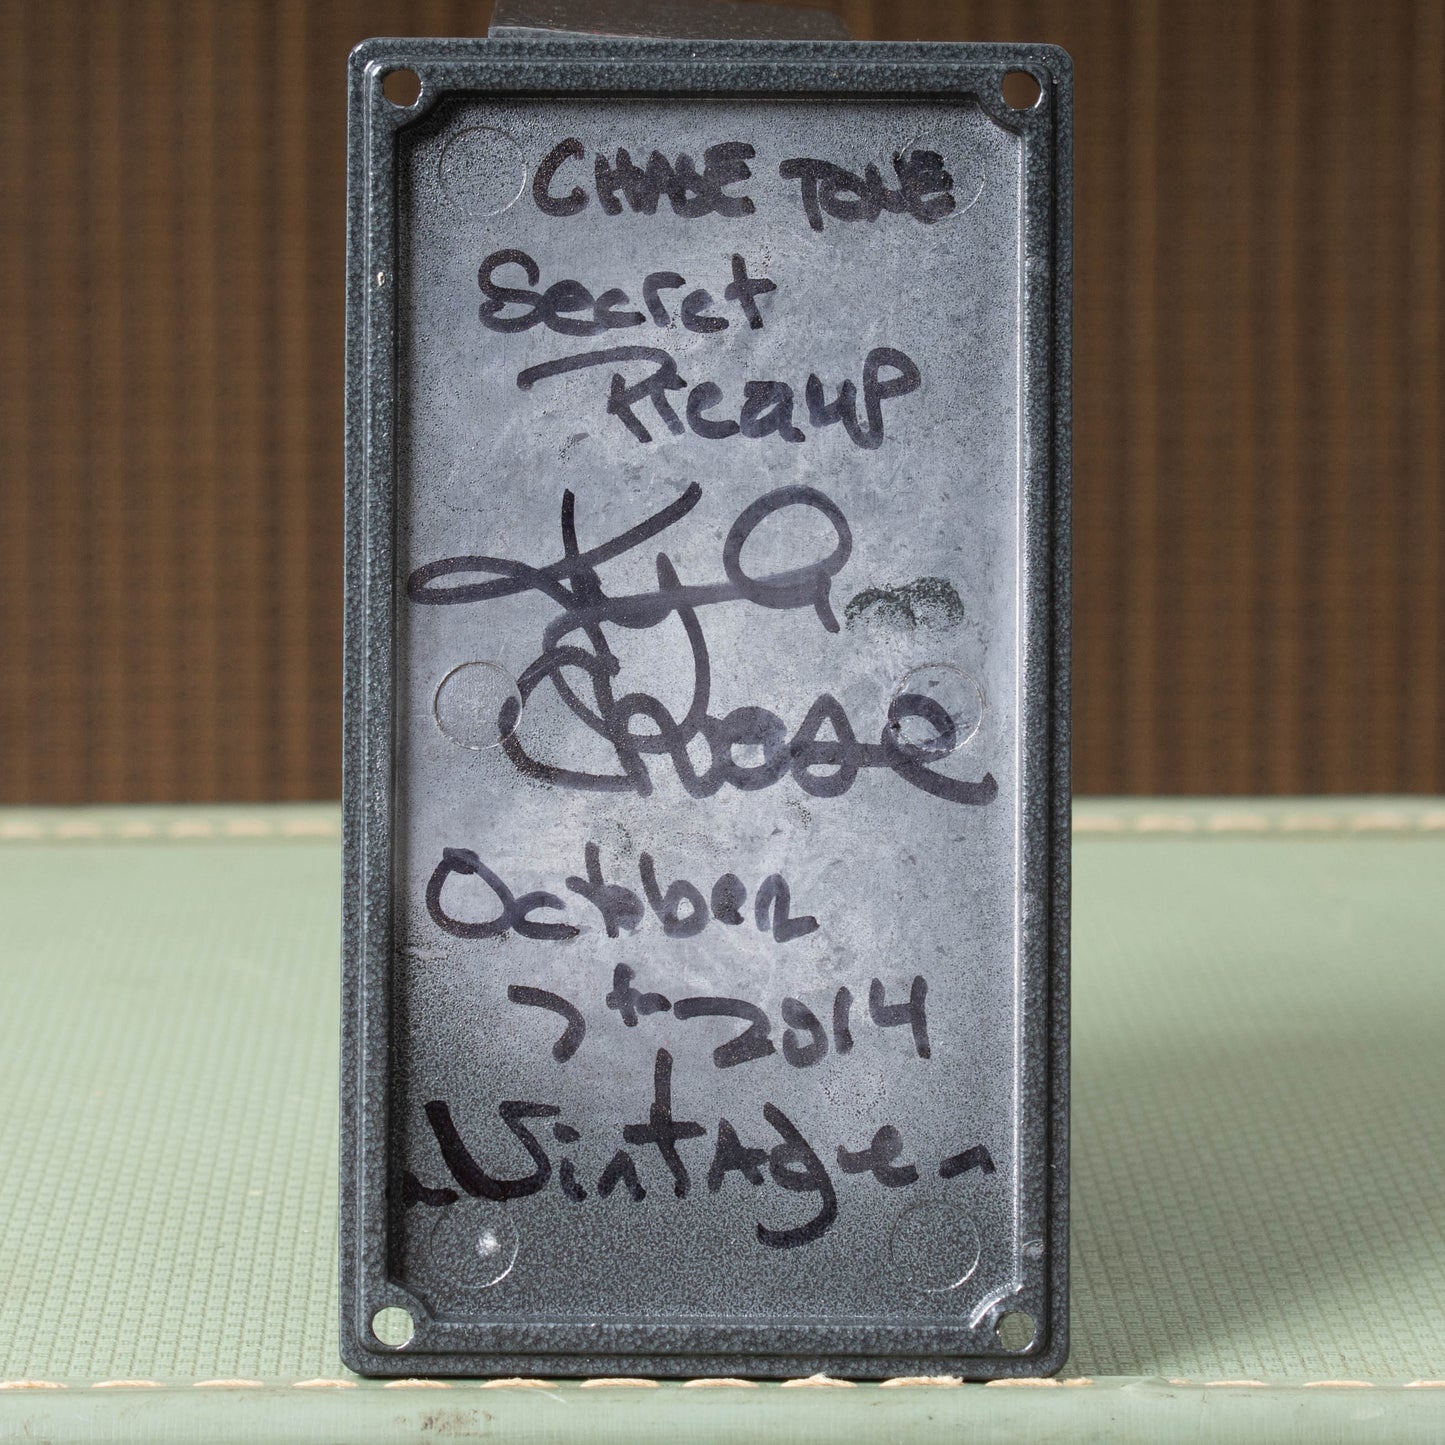 CHASE TONE
Secret
PREAMP
Kyle
Chase
October
7th 2014
-Vintage-